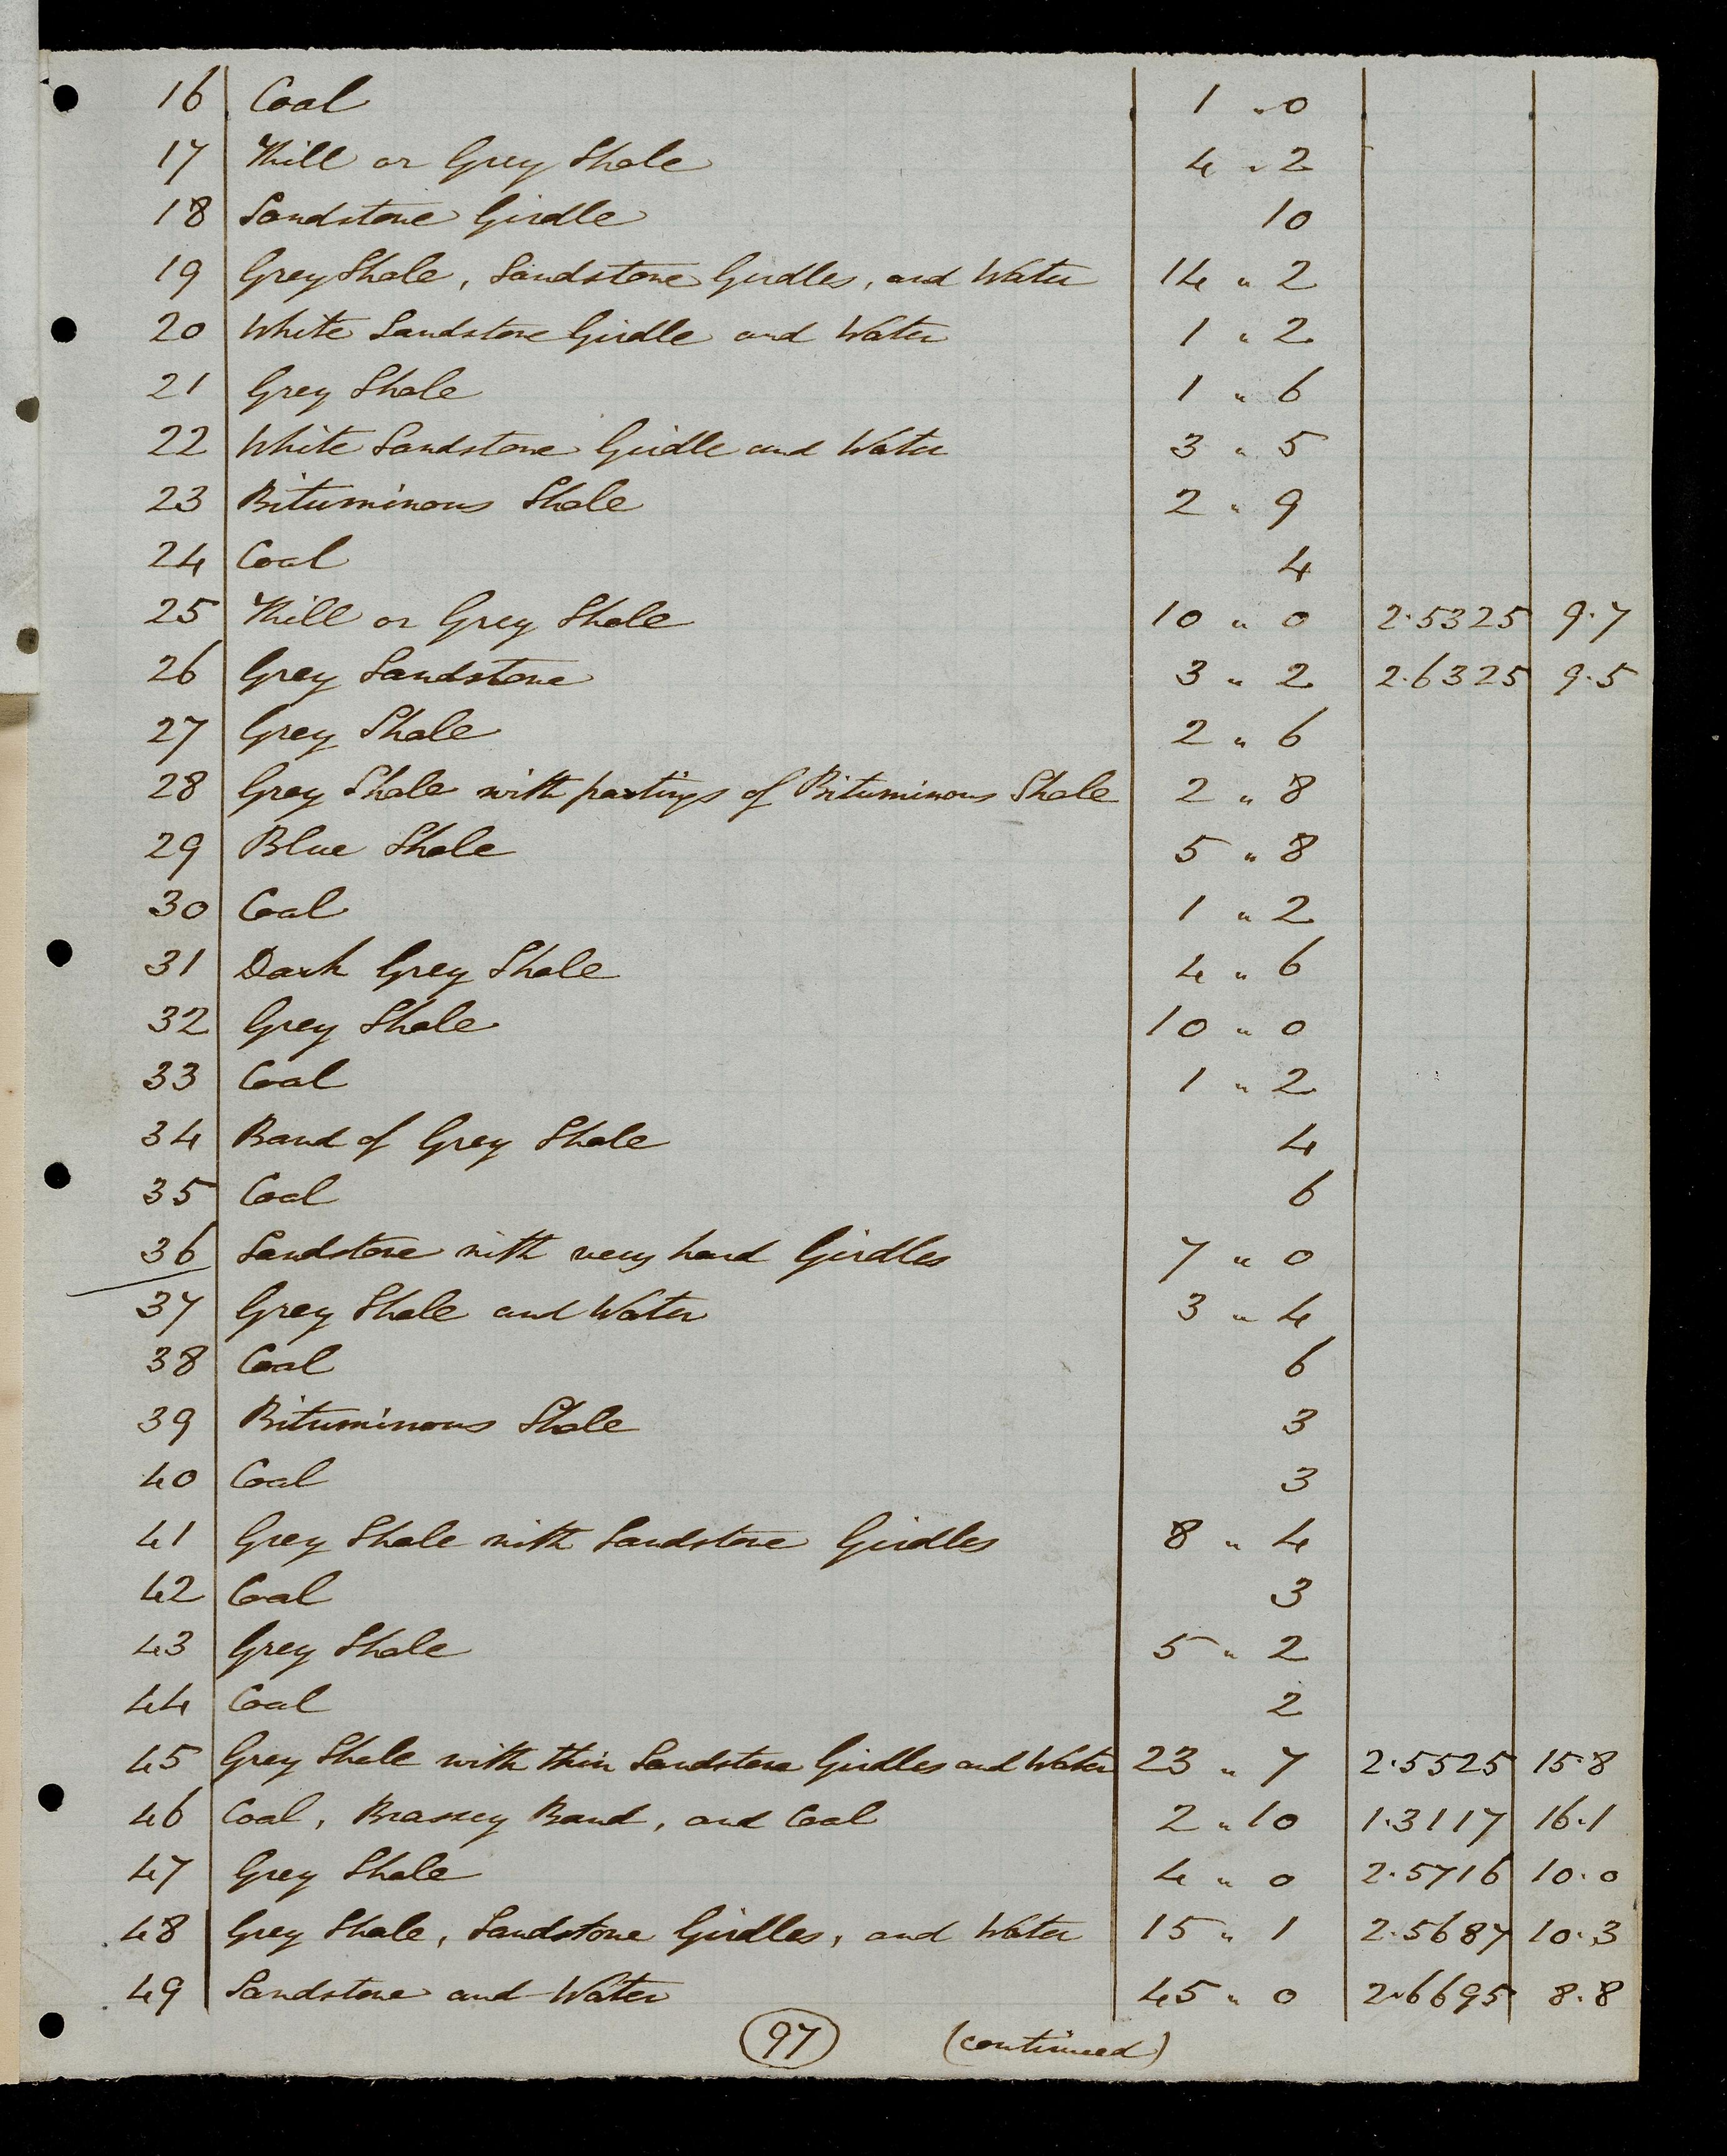 16 Coal 1 " 0
17 Thill or Grey Shale 4 " 2
18 Sandstone Girdle 10
19 Grey Shale, Sandstone Girdles, and Water 14 " 2
20 White Sandstone Girdle and Water 1 " 2
21 Grey Shale 1 " 6
22 White Sandstone Girdle and Water 3 " 5
23 Bituminous Shale 2 " 9
24 Coal 4
25 Thill or Grey Shale 10 " 0 2.5325 9.7
26 Grey Sandstone 3 " 2 2.6325 9.5
27 Grey Shale 2 " 6
28 Grey Shale with partings of Bituminous Shale 2 " 8
29 Blue Shale 5 " 8
30 Coal 1 " 2
31 Dark Grey Shale 4 " 6
32 Grey Shale 10 " 0
33 Coal 1 " 2
34 Band of Grey Shale 4
35 Coal 6
36 Sandstone with very hard Girdles 7 " 0
37 Grey Shale and Water 3 " 4
38 Coal 6
39 Bituminous Shale 3
40 Coal 3
41 Grey Shale with Sandstone Girdles 8 " 4
42 Coal 3
43 Grey Shale 5 " 2
44 Coal 2
45 Grey Shale with thin Sandstone Girdles and Water 23 " 7 2.5525 15.8
46 Coal, Brassey Band, and Coal 2 " 10 1.3117 16.1
47 Grey Shale 4 " 0 2.5716 10.0
48 Grey Shale, Sandstone Girdles, and Water 15 " 1 2.5687 10.3
49 Sandstone and Water 45 " 0 2.6695 8.8
97 (continued)